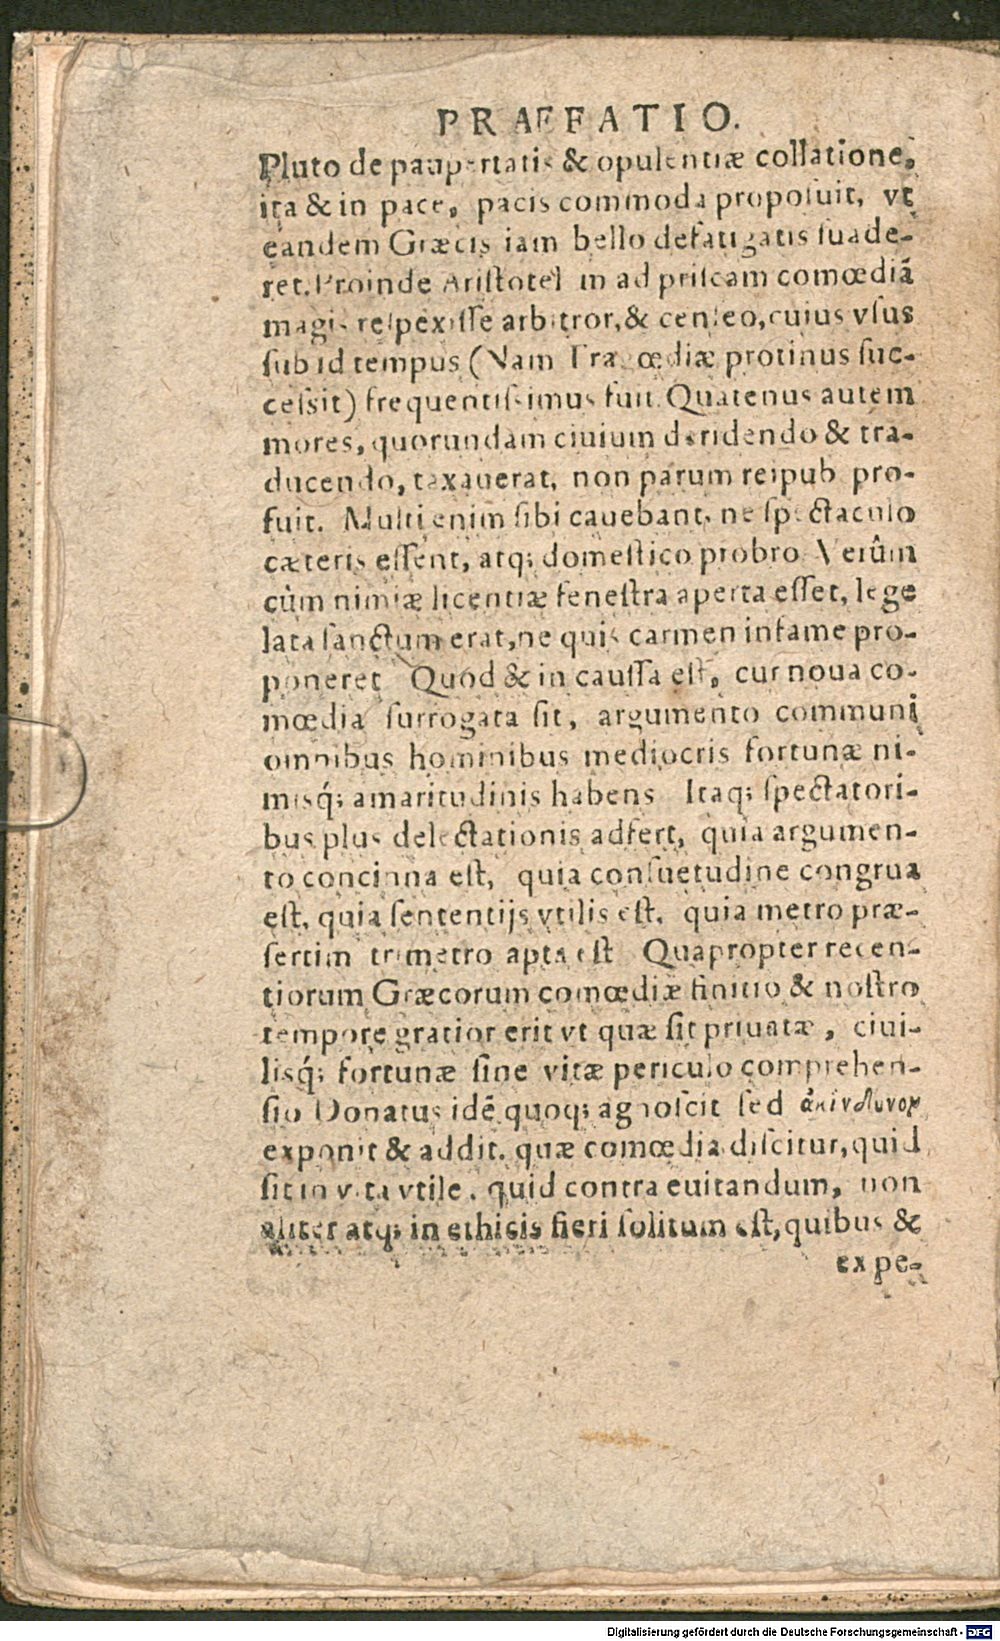 PRAEFATIO.
Pluto de paupertatis & opulentiæ collatione,
ita & in pace, pacis commoda proposuit, vt
eandem Græcis iam bello defatigatis suade-
ret. Proinde Aristotelem ad priscam comœdiã
magis respexisse arbitror, & censeo, cuius vsus
sub id tempus (Nam Tragœdiæ protinus suc-
cessit) frequentissimus fuit. Quatenus autem
mores, quorundam ciuium deridendo & tra-
ducendo, taxauerat, non parum reipub pro-
fuit. Multi enim sibi cauebant, ne spectaculo
cæteris essent, atq; domestico probro Verûm
cùm nimiæ licentiæ fenestra aperta esset, lege
lata sanctum erat, ne quis carmen infame pro-
poneret Quod & in caussa est, cur noua co-
mœdia surrogata sit, argumento communi
omnibus hominibus mediocris fortunæ ni-
misq́; amaritudinis habens Itaq; spectatori-
bus plus delectationis adfert, quia argumen-
to concinna est, quia consuetudine congrua
est, quia sententijs vtilis est, quia metro præ-
sertim trimetro apta est Quapropter recen-
tiorum Græcorum comœdiæ finitio & nostro
tempore gratior erit vt quæ sit priuatæ, ciui-
lisq́; fortunæ sine vitæ periculo comprehen-
sio Donatus idẽ quoq; agnoscit sed ἀκίνδυνον
exponit & addit. quæ comœdia discitur, quid
sit in vita vtile. quid contra euitandum, non
aliter atq; in ethicis fieri solitum est, quibus &
expe-
Digitalisierung gefördert durch die Deutsche Forschungsgemeinschaft - DFG